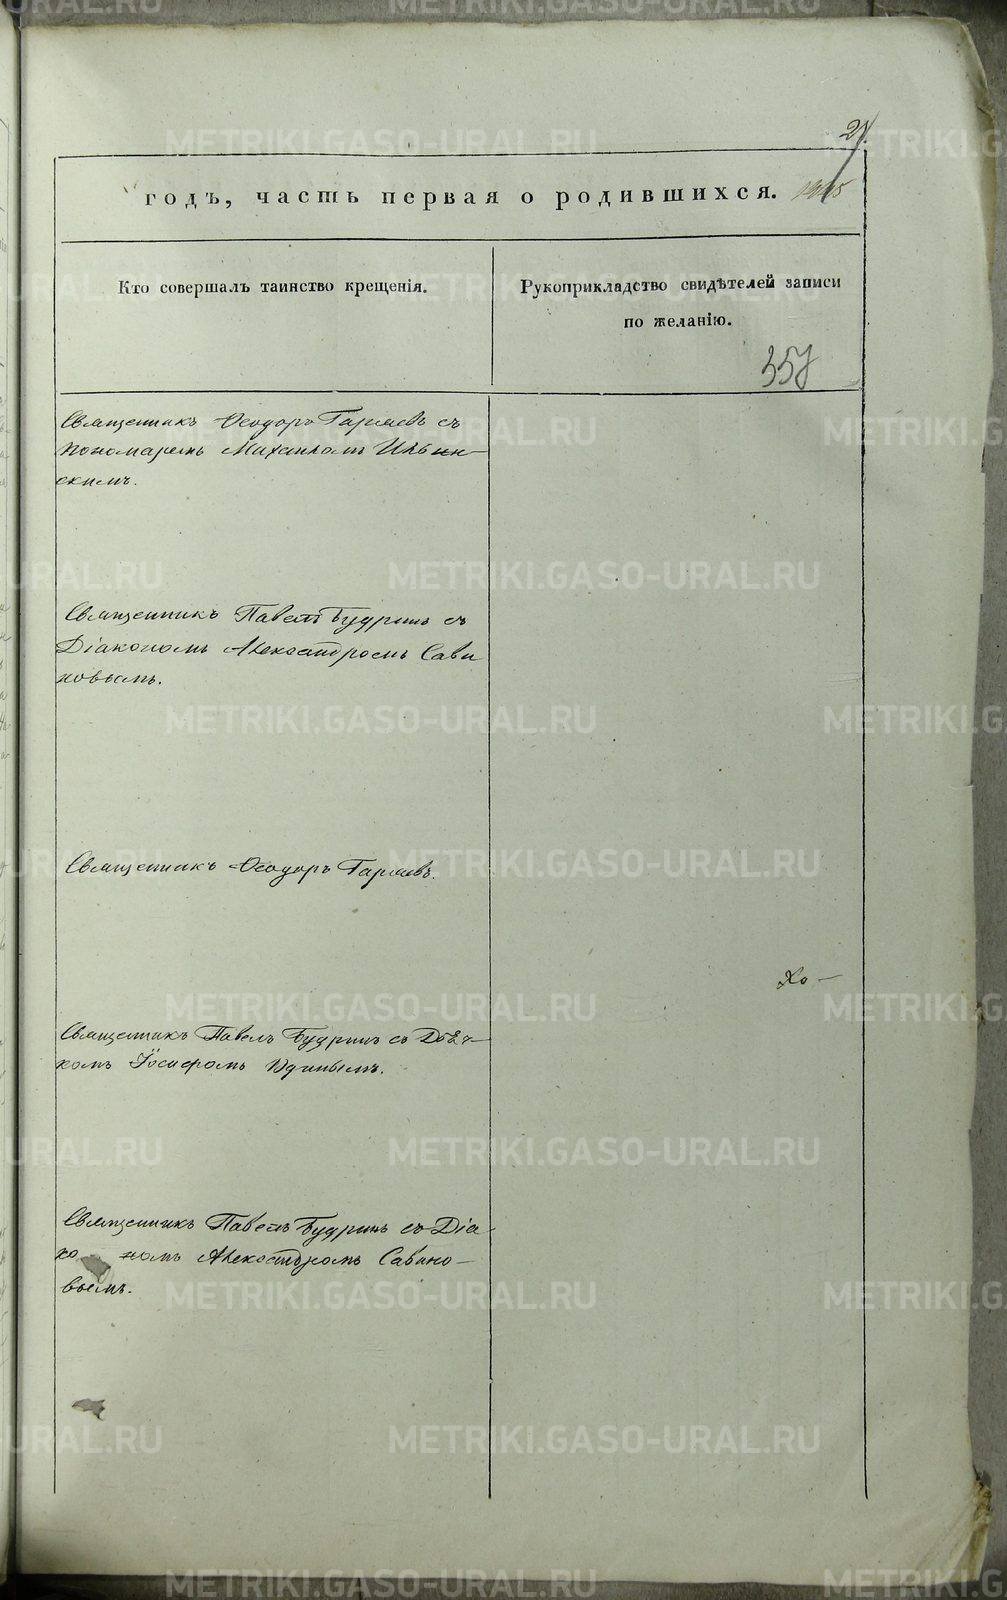 METRIKI.GASO-URAL.RU
годъ, часть первая о родившихся.
Кто совершалъ таинство крещенія.
Рукоприкладство свидѣтелей записи
по желанію.
357
Священникъ Ѳеодоръ Гаряевъ съ
пономаремъ Михаиломъ Ильин-
скимъ.
Священникъ Павелъ Будринъ съ
Діакономъ Александромъ Сави
новымъ.
Священникъ Ѳеодоръ Гаряевъ.
Хо-
Священникъ Павелъ Будринъ съ Дьяч-
комъ Іосифомъ
Священникъ Павелъ Будринъ съ Діа-
ко номъ Александромъ Савино-
вымъ.